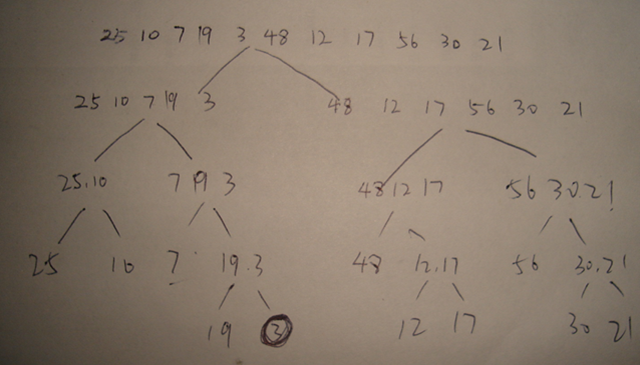 25 10 7 19 3 48 12 17 56 30 21
25 10 7 19 3 48 12 17 56 30 21
25.10 7 19 3 48 12 17 56 30.21
25 10 7 19.3 48 12.17 56 30.21
19 3 12 17 30 21